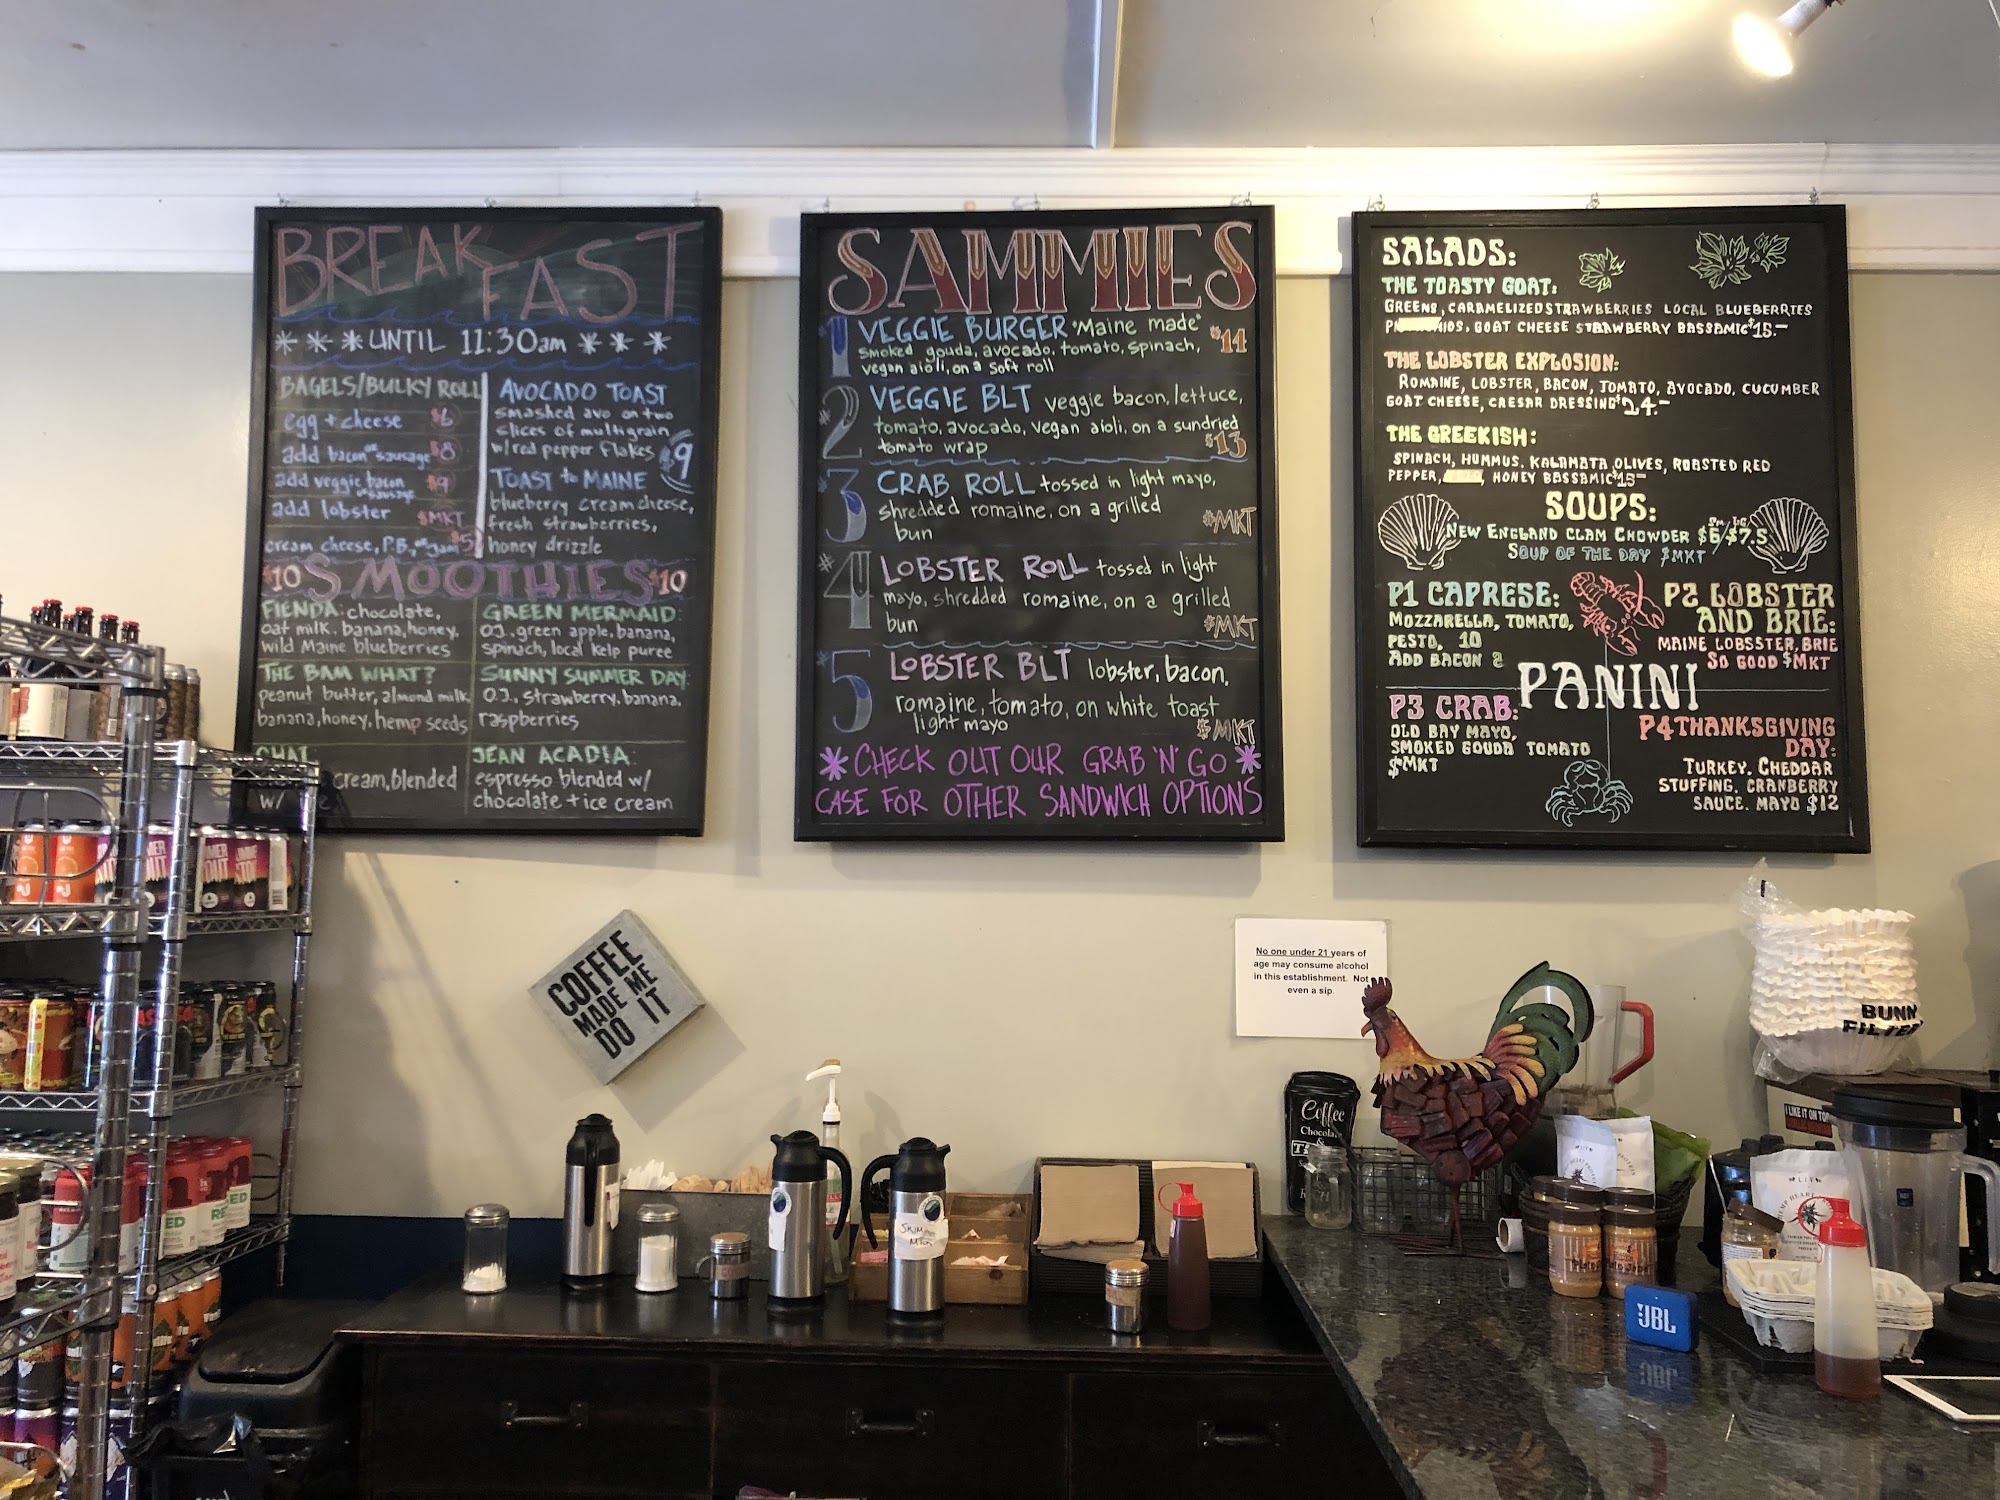 BREAKFAST
* * * UNTIL 11:30am * * *
BAGELS/BULKY ROLL
egg + cheese $6
add bacon or sausage $8
add veggie bacon or sausage $9
add lobster $MKT
cream cheese, P.B., or jam $5
AVOCADO TOAST
smashed avo on two
slices of multigrain
w/red pepper flakes $9
TOAST to MAINE
blueberry cream cheese,
fresh strawberries,
honey drizzle
$10 SMOOTHIES $10
FIENDA: chocolate,
oat milk, banana, honey,
wild Maine blueberries
THE BAM WHAT?
peanut butter, almond milk
banana, honey, hemp seeds
CHAI
cream, blended
w/
GREEN MERMAID:
O.J. green apple, banana,
spinach, local kelp puree
SUNNY SUMMER DAY:
O.J., strawberry, banana,
raspberries
JEAN ACADIA:
espresso blended w/
chocolate + ice cream
SAMMIES
#1 VEGGIE BURGER "Maine made" $14
smoked gouda, avocado, tomato, spinach,
vegan aioli, on a soft roll
#2 VEGGIE BLT veggie bacon, lettuce,
tomato, avocado, vegan aioli, on a sundried
tomato wrap $13
#3 CRAB ROLL tossed in light mayo,
shredded romaine, on a grilled
bun $MKT
#4 LOBSTER ROLL tossed in light
mayo, shredded romaine, on a grilled
bun $MKT
#5 LOBSTER BLT lobster, bacon,
romaine, tomato, on white toast
light mayo $MKT
* CHECK OUT OUR GRAB 'N' GO *
CASE FOR OTHER SANDWICH OPTIONS
SALADS:
THE TOASTY GOAT:
GREENS, CARAMELIZED STRAWBERRIES LOCAL BLUEBERRIES
GOAT CHEESE STRAWBERRY BASSAMIC $15.-
THE LOBSTER EXPLOSION:
ROMAINE, LOBSTER, BACON, TOMATO, AVOCADO, CUCUMBER
GOAT CHEESE, CAESAR DRESSING $24.-
THE GREEKISH:
SPINACH, HUMMUS. KALAMATA OLIVES, ROASTED RED
PEPPER, HONEY BASSAMIC $15-
SOUPS:
Sm/LG
NEW ENGLAND CLAM CHOWDER $6/$7.5
SOUP OF THE DAY $MKT
P1 CAPRESE:
MOZZARELLA, TOMATO,
PESTO, 10
ADD BACON 2
P2 LOBSTER
AND BRIE:
MAINE LOBSSTER, BRIE
SO GOOD $MKT
PANINI
P3 CRAB:
OLD BAY MAYO,
SMOKED GOUDA TOMATO
$MKT
P4 THANKSGIVING
DAY:
TURKEY, CHEDDAR
STUFFING, CRANBERRY
SAUCE. MAYO $12
COFFEE
MADE ME
DO IT
No one under 21 years of
age may consume alcohol
in this establishment. Not
even a sip.
Coffee
Chocolate
&
BUNN
FILTER
I LIKE IT ON TOP
SKIM
MILK
JBL